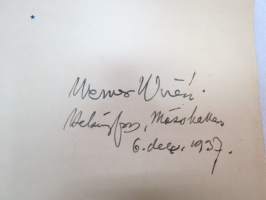 Werner Wirén.
Helsingfors, Mässhallen
6. dec. 1937.